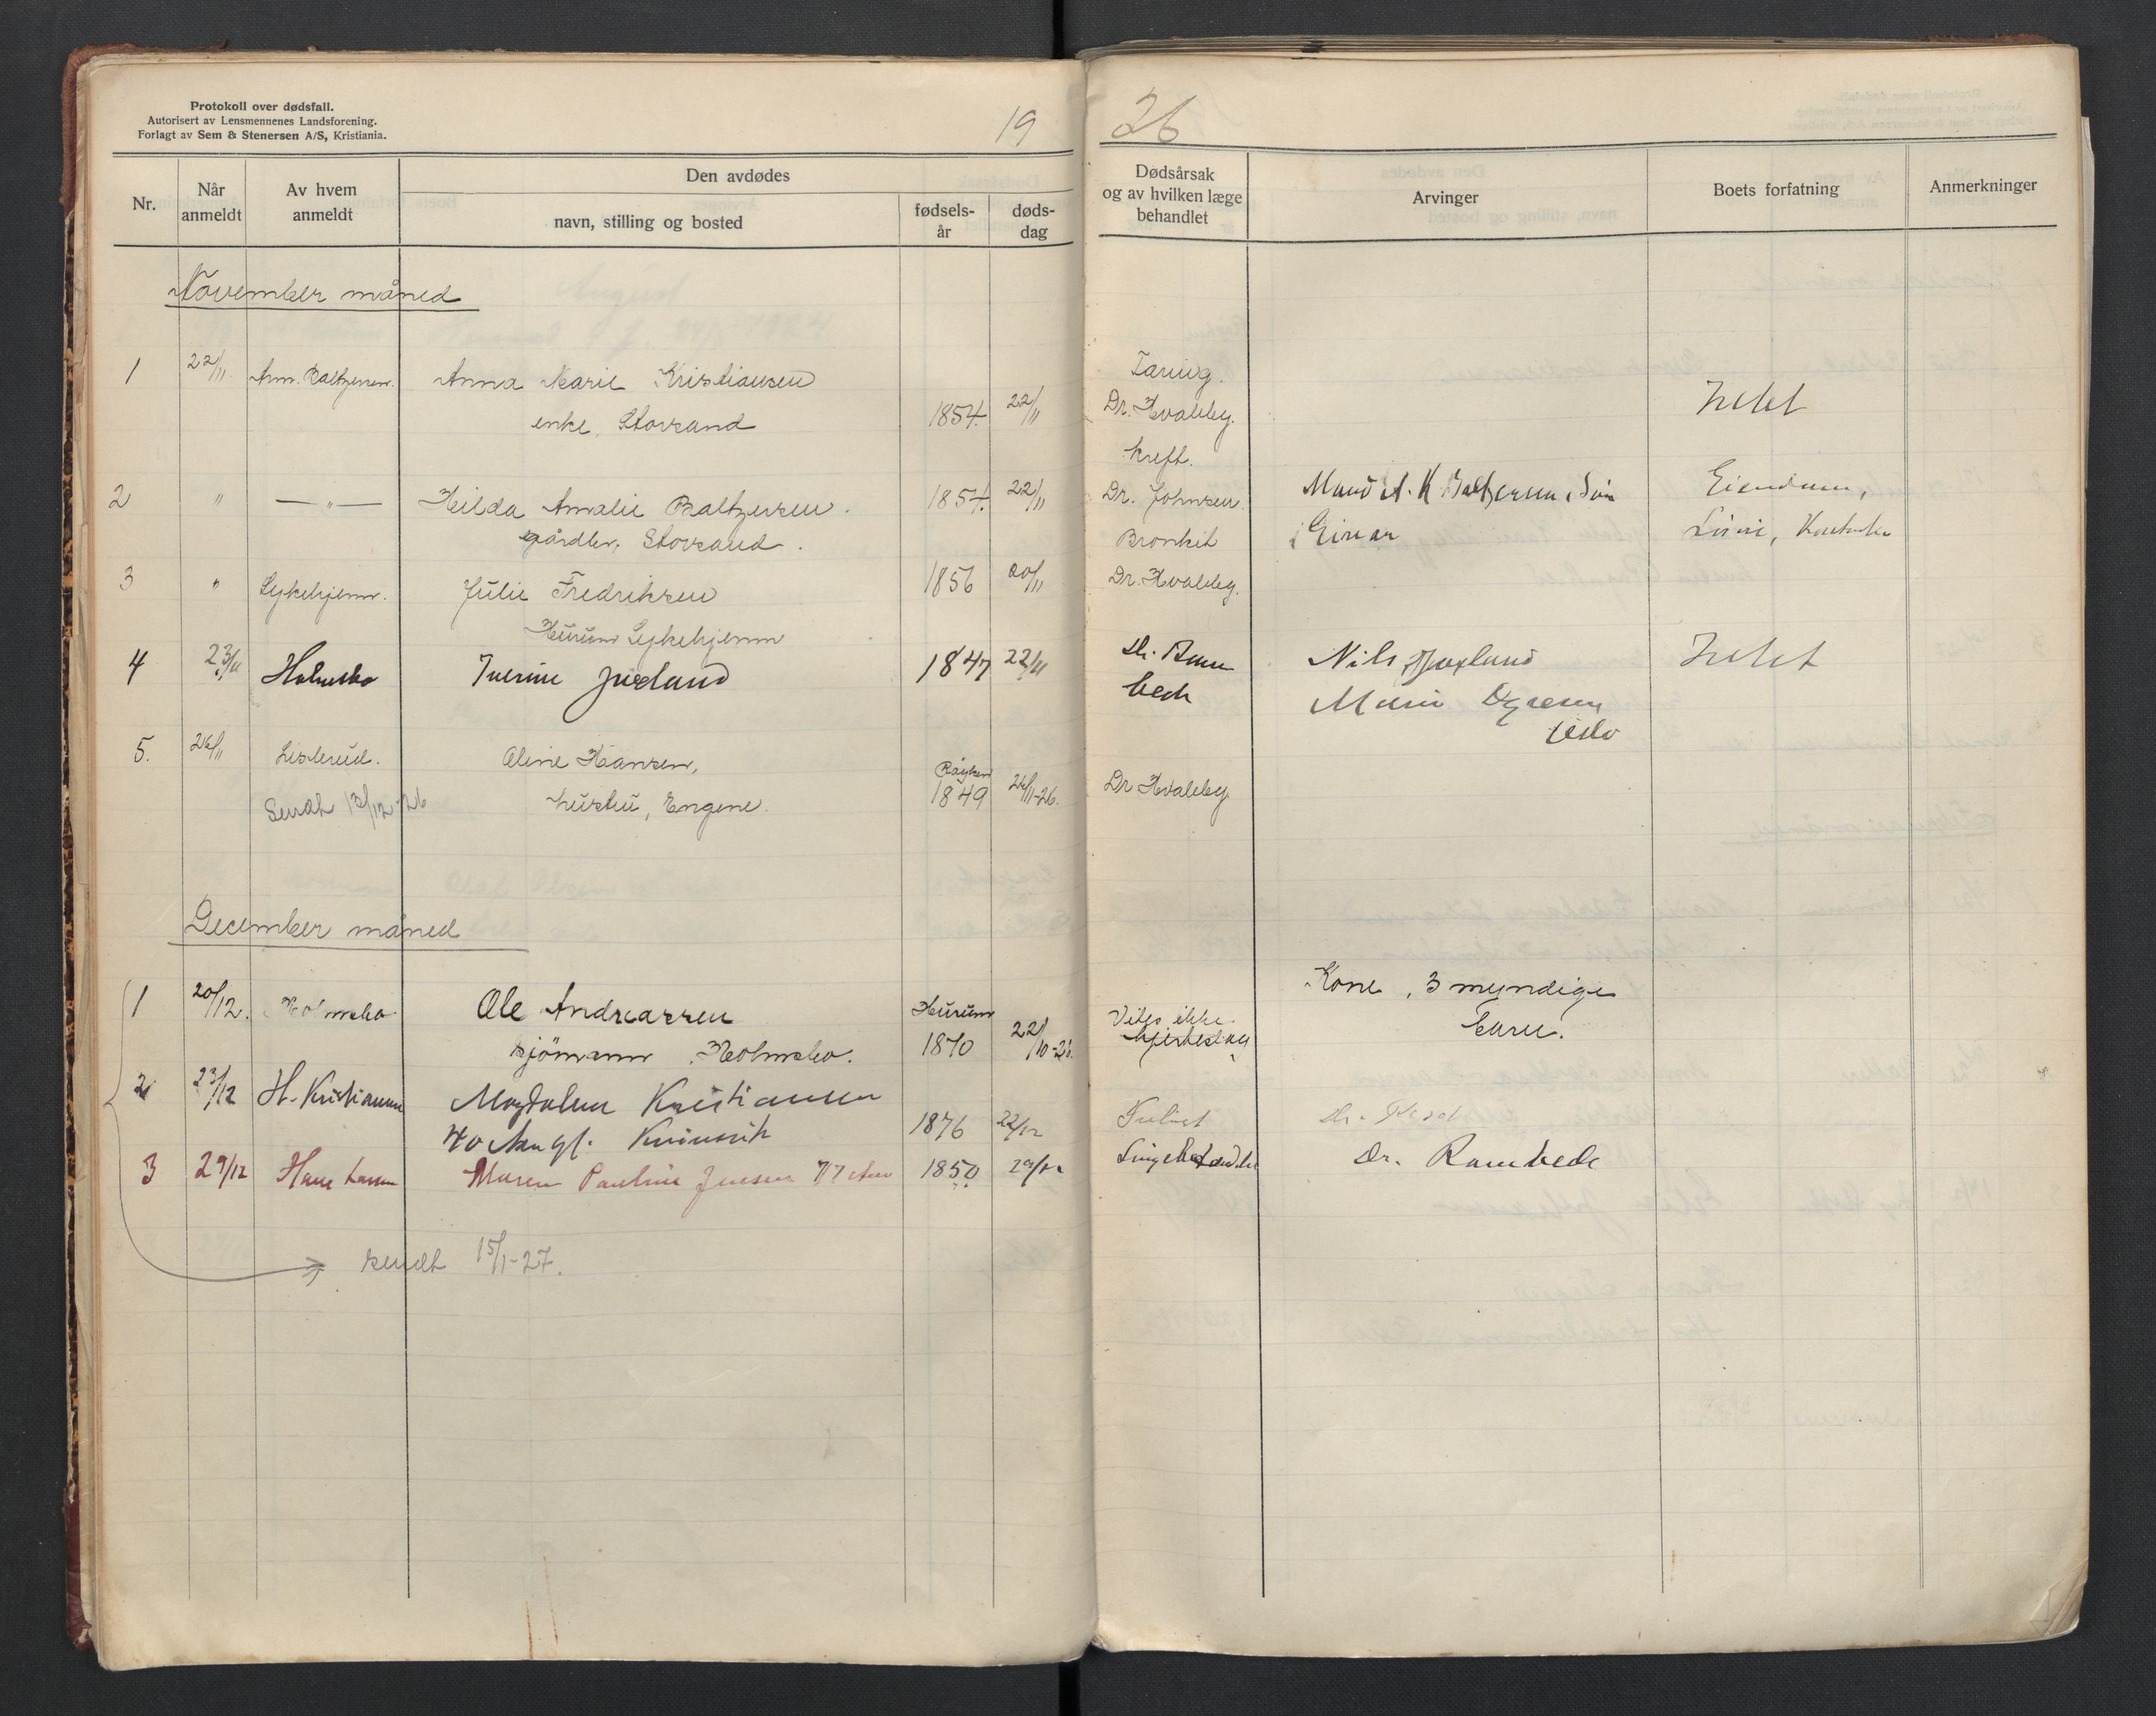 Protokoll over dødsfall.
Autorisert av Lensmennenes Landsforening.
Forlagt av Sem & Stenersen A/S, Kristiania.
19 26
Nr.
Når anmeldt
Av hvem anmeldt
Den avdødes
navn, stilling og bosted
fødsels-år
døds-dag
Dødsårsak og av hvilken læge behandlet
Arvinger
Boets forfatning
Anmerkninger
November måned
1 22/11 Am. Baltzersen. Anna Marie Kristiansen Tæring.
enke, Storsand 1854. 22/11 Dr. Kvaleby. Intet
kreft.
2 " — " — Hilda Amalie Baltzersen. 1854. 22/11 Dr. Johnsen. Mand A. K Baltzersen, Søn Eiendom,
gårdbr. Storsand. Bronkit Einar
3 " Sykehjem. Julie Fredriksen 1856 20/11 Dr. Kvaleby.
Hurum Sykehjem
4 23/11 Holmsbo Iverine 1847 22/11 Dr. Ram Nils Intet
beck Oslo
5. 26/11 Listerud. Oline Hansen, Røyken
Sendt 13/12-26 hustru, Engene. 1849 26/11-26. Dr Kvaleby
December måned
1 20/12. Holmsbo Ole Andreassen Hurum Vites ikke Kone, 3 myndige
sjömann, Holmsbo. 1870 22/10-26. hjerteslag barn.
2 23/12 H. Kristiansen Magdalena Kristiansen
1876 22/12 Dr.
3 29/12 Hans Larsen Maren Pauline Jensen 77 1850 29/12 Dr. Rambeck
sendt 15/1-27.